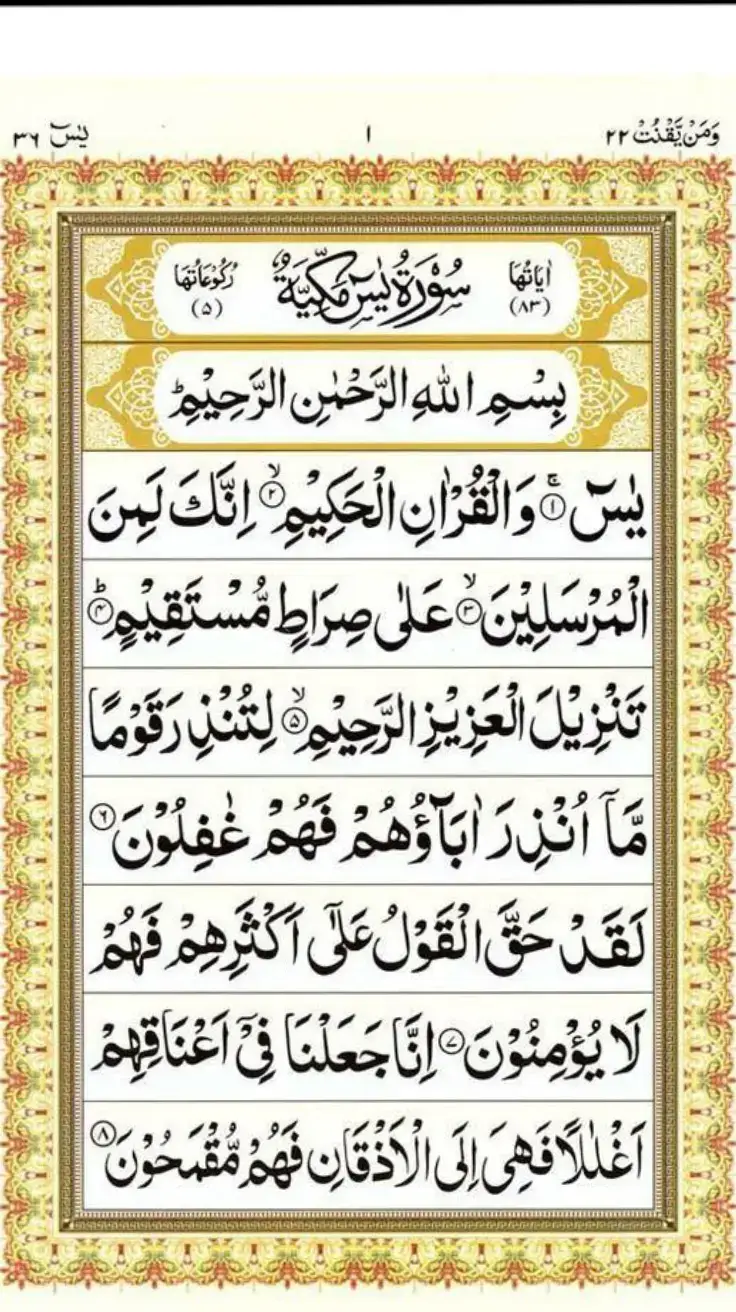 وَمَنْ يَّقْنُتْ ٢٢
١
يٰسٓ ٣٦
اٰيَاتُهَا (٨٣)
سُوْرَةُ يٰسٓ مَكِّيَّةٌ
رُكُوْعَاتُهَا (٥)
بِسْمِ اللهِ الرَّحْمٰنِ الرَّحِيْمِ ؕ
يٰسٓ ۚ ﴿١﴾ وَالْقُرْاٰنِ الْحَكِيْمِ ۙ ﴿٢﴾ اِنَّكَ لَمِنَ
الْمُرْسَلِيْنَ ۙ ﴿٣﴾ عَلٰى صِرَاطٍ مُّسْتَقِيْمٍ ؕ ﴿٤﴾
تَنْزِيْلَ الْعَزِيْزِ الرَّحِيْمِ ۙ ﴿٥﴾ لِتُنْذِرَ قَوْمًا
مَّاۤ اُنْذِرَ اٰبَآؤُهُمْ فَهُمْ غٰفِلُوْنَ ﴿٦﴾
لَقَدْ حَقَّ الْقَوْلُ عَلٰٓى اَكْثَرِهِمْ فَهُمْ
لَا يُؤْمِنُوْنَ ﴿٧﴾ اِنَّا جَعَلْنَا فِيْۤ اَعْنَاقِهِمْ
اَغْلٰلًا فَهِىَ اِلَى الْاَذْقَانِ فَهُمْ مُّقْمَحُوْنَ ﴿٨﴾